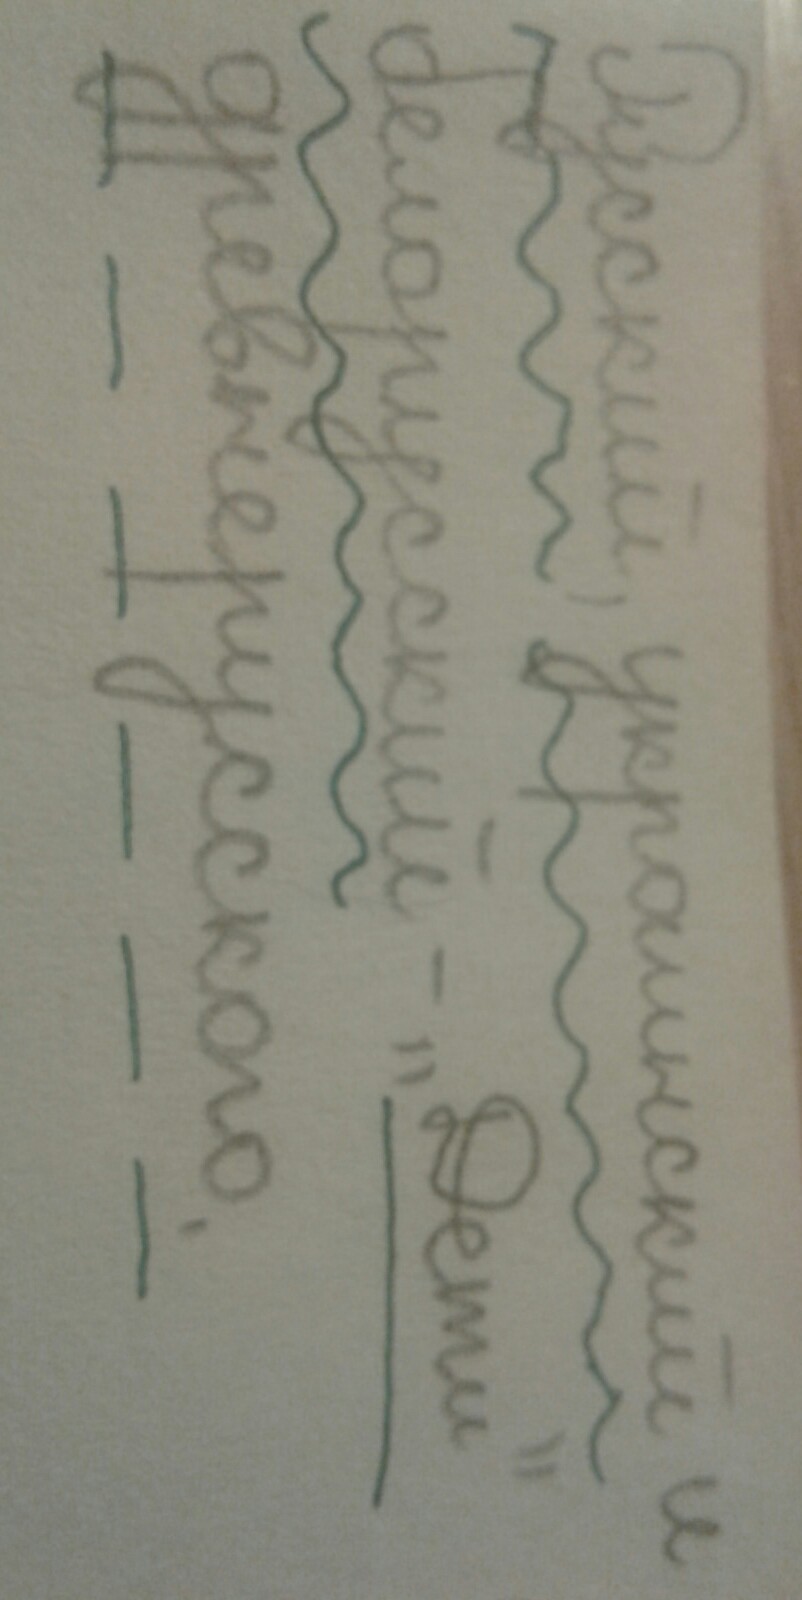 Русский, украинский и
белорусский - "Дети"
древнерусского.